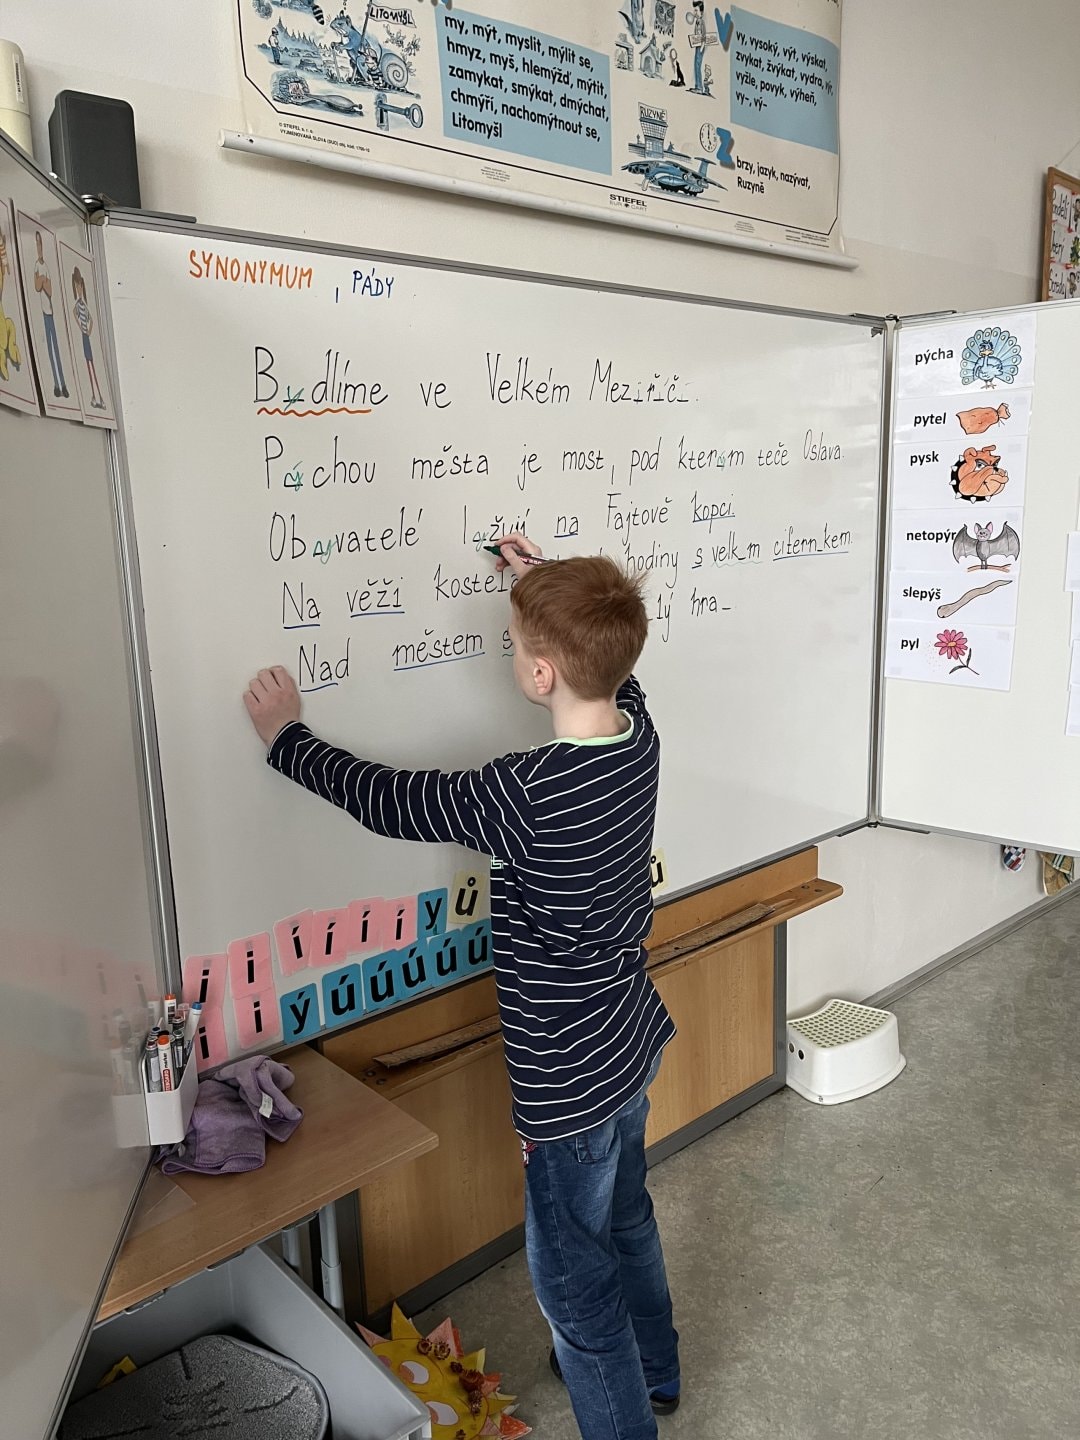 LITOMYŠL
my, mýt, myslit, mýlit se,
hmyz, myš, hlemýžď, mýtit,
zamykat, smýkat, dmýchat,
chmýří, nachomýtnout se,
Litomyšl
vy, vysoký, výt, výskat,
zvykat, žvýkat, vydra, výr,
vyžle, povyk, výheň,
vy-, vý-
RUZYNĚ
brzy, jazyk, nazývat,
Ruzyně
© STIEFEL
VYJMENOVANÁ SLOVA
STIEFEL
EUROCART
SYNONYMUM , PÁDY
Bydlíme ve Velkém Mez_ř_č_.
Pýchou města je most, pod kterým teče Oslava.
Obyvatelé lyžují na Fajtově kopci.
Na věži kostela hodiny s velk_m cifern_kem.
Nad městem s _lý hra_
pýcha
pytel
pysk
netopýr
slepýš
pyl
i i í í í í y ů ů
i i ý ú ú ú ú ú